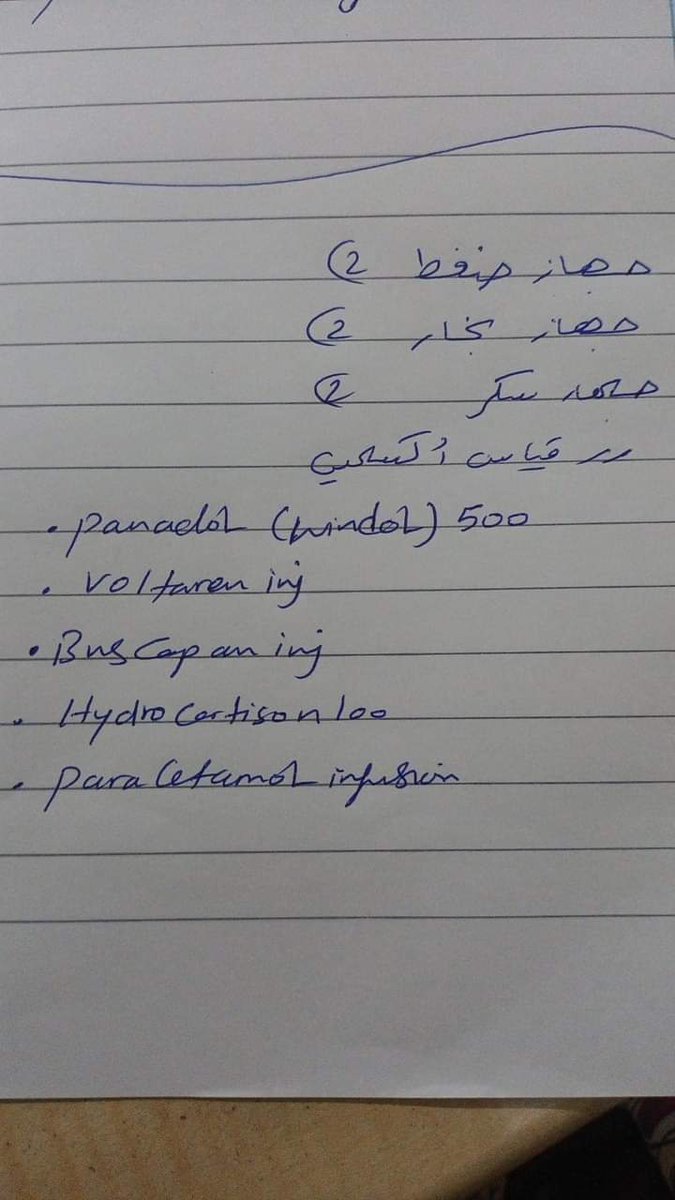 جهاز ضغط (2
جهاز بخار (2
جهاز سكر (2
〃 قياس أكسجين
. Panadol (windol) 500
. Voltaren inj
. Buscopan inj
. Hydrocortison 100
. Paracetamol infusion